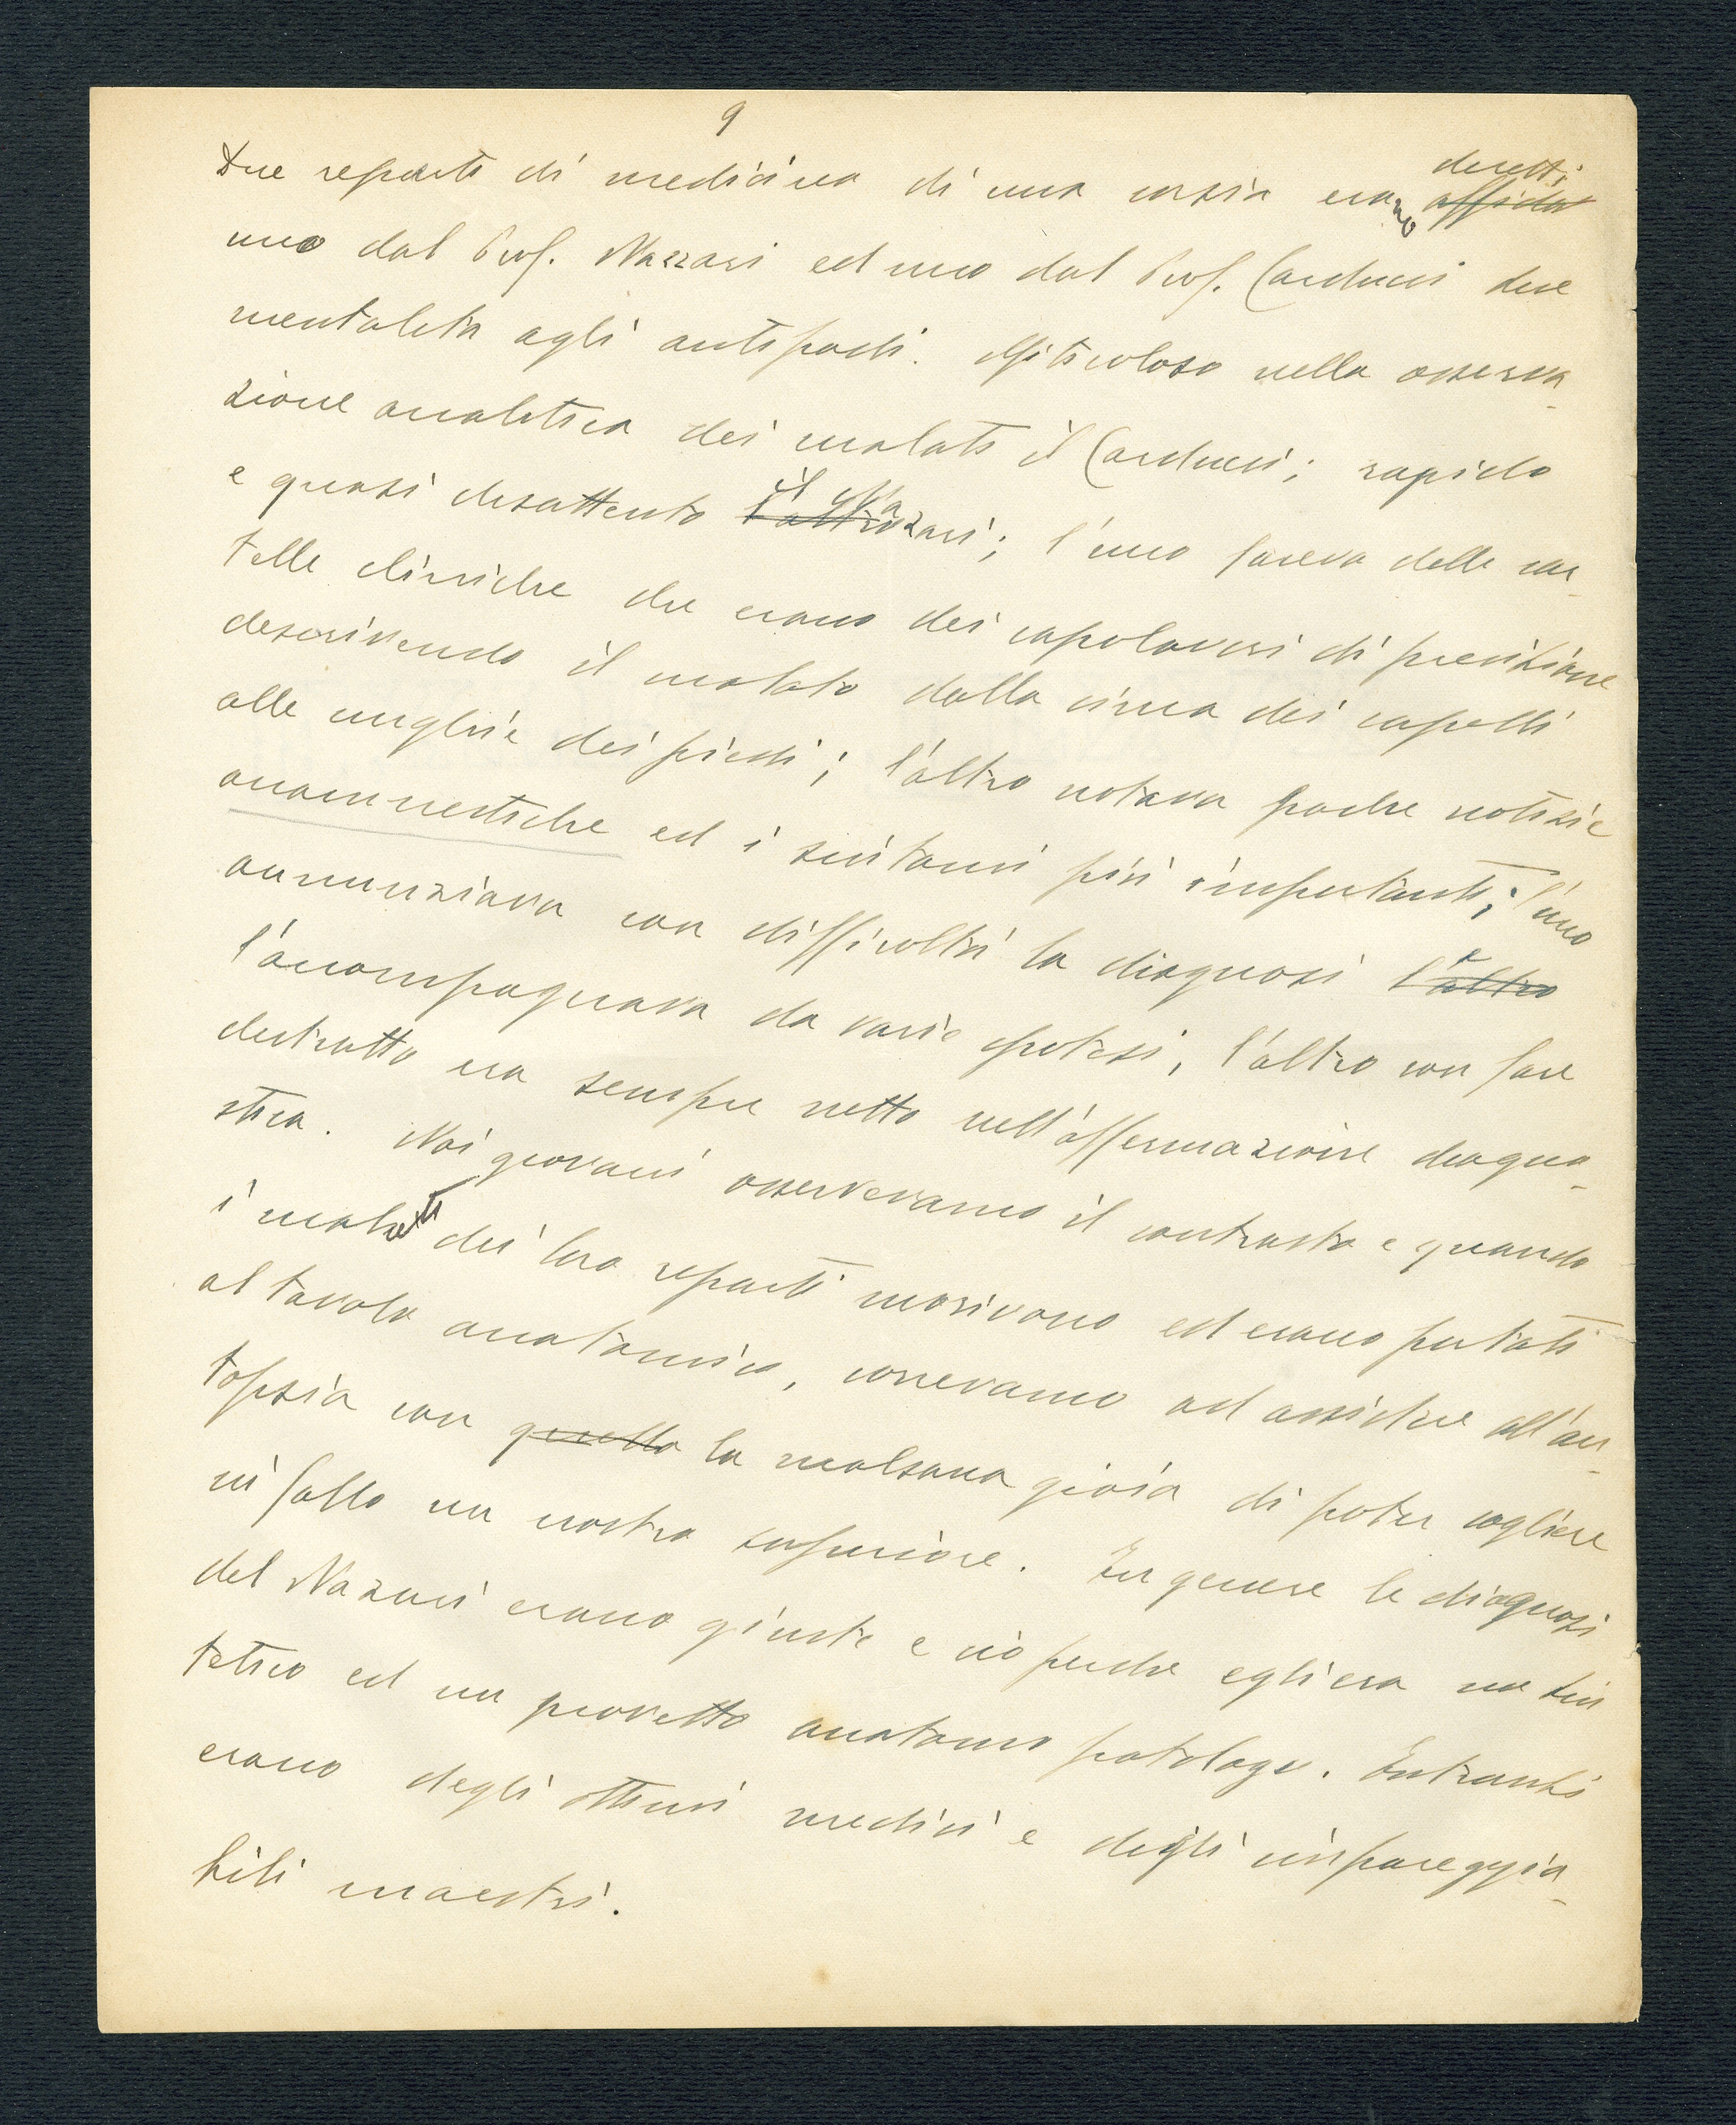 9
Due reparti di medicina di una corsia erano diretti affidat
uno dal Prof. Nazzari ed uno dal Prof. Carducci due
mentalità agli antipodi. Miticoloso nella osserva-
zione analitica dei malati il Carducci; rapido
e quasi disattento l'altro il Nazzari; l'uno faceva delle car-
telle cliniche che erano dei capolavori di precisione
descrivendo il malato dalla cima dei capelli
alle unghie dei piedi; l'altro notava poche notizie
anamnestiche ed i sintomi più importanti; l'uno
annunziava con difficoltà la diagnosi l'altro e
l'accompagnava da varie ipotesi, l'altro con fare
distratto era sempre netto nell'affermazione diagno-
stica. Noi giovani osservavamo il contrasto e quando
i malati dei loro reparti morivano ed erano portati
al tavolo anatomico, correvamo ad assistere all'au-
topsia con quella la malsana gioia di poter cogliere
in fallo un nostro superiore. In genere le diagnosi
del Nazari erano giuste e ciò perché egli era un sin
tetico ed un provetto anatomo patologo. Entrambi
erano degli ottimi medici e degli impareggia-
bili maestri.